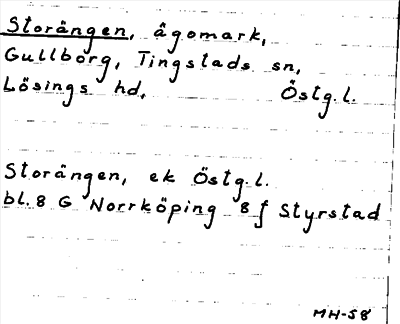 Storängen, ägomark,
Gullborg, Tingstads sn,
Lösings hd, Östg.l.
Storängen, ek Östg.l.
bl. 8 G Norrköping 8 f Styrstad
MH-58